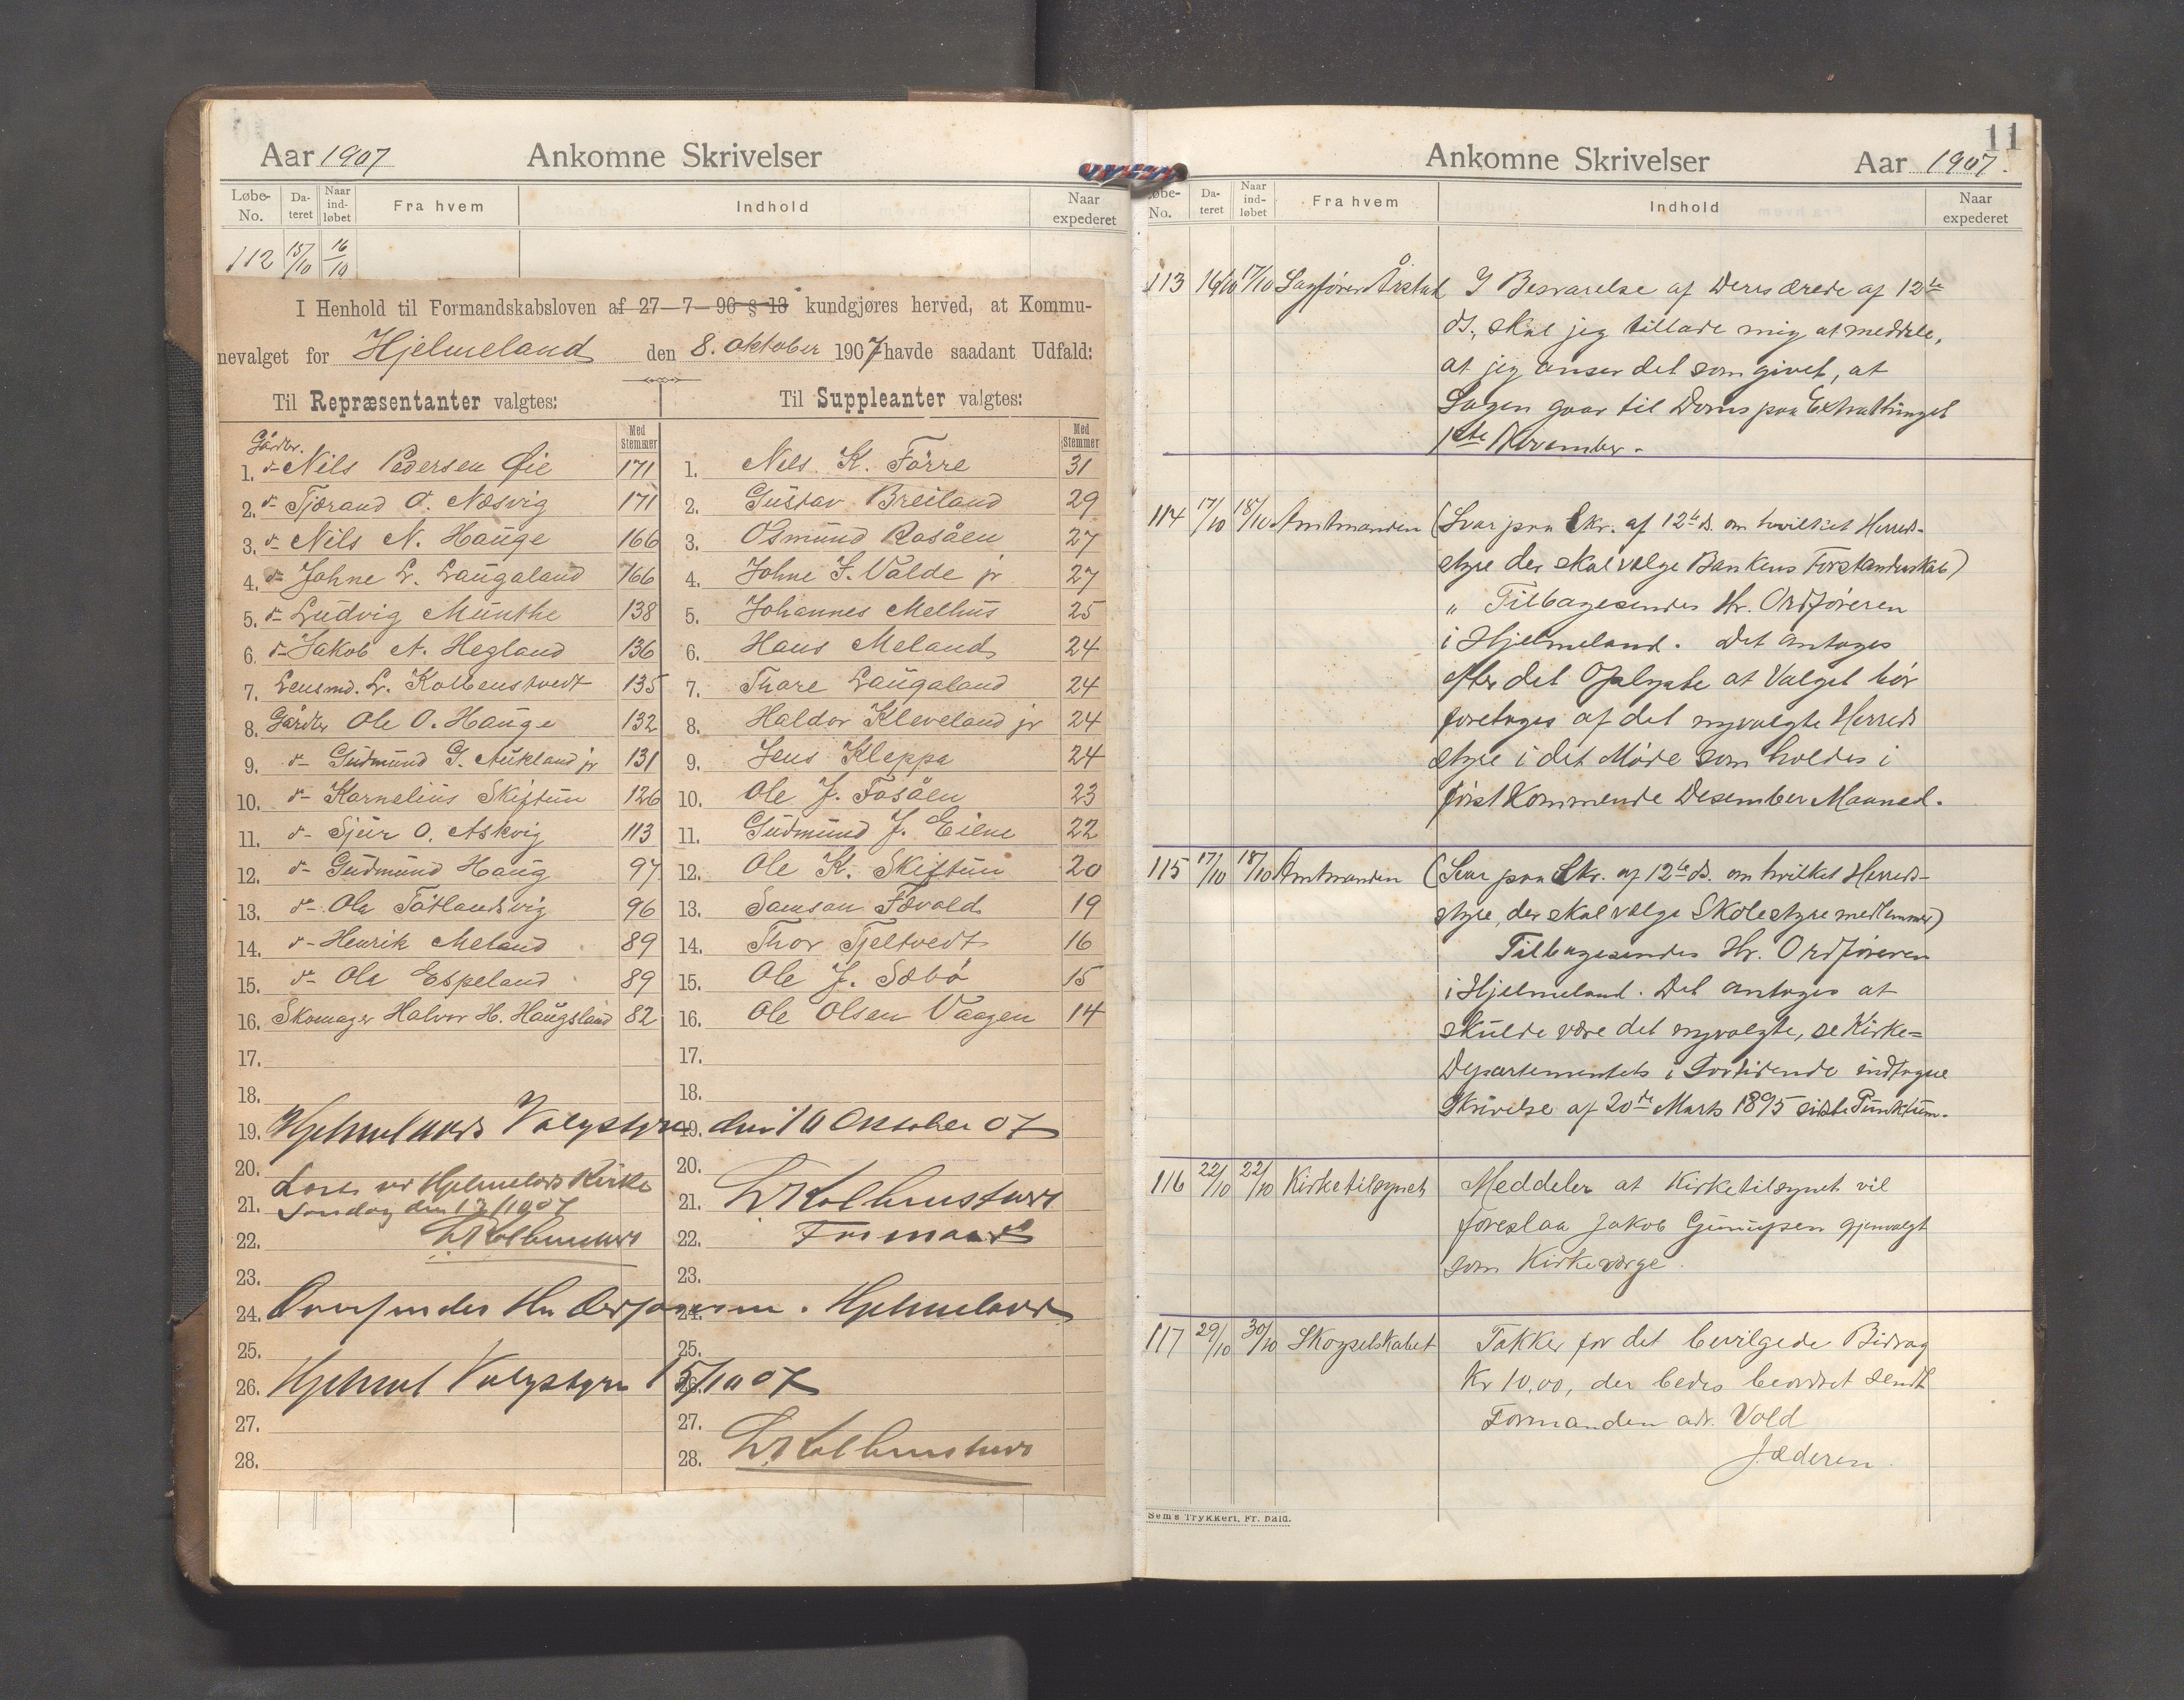 Aar 1907 Ankomne Skrivelser
Løbe-No. Dateret Naar indløbet Fra hvem Indhold Naar expederet
112 15/10 16/10
I Henhold til Formandskabsloven af 27-7-96 § 13 kundgjøres herved, at Kommu-
nevalget for Hjelmeland den 8. oktober 1907 havde saadant Udfald:
Til Repræsentanter valgtes: Til Suppleanter valgtes:
Med Stemmer Med Stemmer
Gårdbr.
1. d- Nils Pedersen Øie 171 1. Nils K. Førre 31
2. d- Tjørand O. Næsvig 171 2. Gustav Breiland 29
3. d- Nils N. Hauge 166 3. Osmund Rasåen 27
4. d- Johne L. Laugaland 166 4. Johne J. Valde jr 27
5. d- Ludvig Munthe 138 5. Johannes Melhus 25
6. d- Jakob A. Hegland 136 6. Hans Meland 24
7. Lensmd. L. Kolbenstvedt 135 7. Thore Laugaland 24
8. Gårdbr Ole O. Hauge 132 8. Haldor Kleveland jr 24
9. d- Gudmund G. Aukland jr 131 9. Jens Kleppa 24
10. d- Kornelius Skiftun 126 10. Ole J. Fosåen 23
11. d- Sjur O. Askvig 113 11. Gudmund J. Eiene 22
12. d- Gudmund Haug 97 12. Ole K. Skiftun 20
13. d- Ola Tøtlandsvig 96 13. Samson Fævold 19
14. d- Henrik Meland 89 14. Thor Tjeltvedt 16
15. d- Ola Espeland 89 15. Ole J. Sæbø 15
16. Skomager Halvor H. Haugsland 82 16. Ole Olsen Vaagen 14
17. 17.
18. 18.
19. Hjelmelands Valgstyre 19. den 10 Oktober 07
20. Læst ved Hjelmelands Kirke 20.
21. Søndag den 13/10 07 21. L Kolbenstvedt
22. L Kolbenstvedt 22. Formand
23. 23.
24. Oversendes Hr Ordføreren i Hjelmeland 24.
25. 25.
26. Hjelmel Valgstyre 15/10 07 26.
27. 27.
28. 28. L Kolbenstvedt
11
Ankomne Skrivelser Aar 1907.
Løbe-No. Dateret Naar indløbet Fra hvem Indhold Naar expederet
113 16/10 17/10 Sagfører Årstad I Besvarelse af Deres ærede af 12te
ds, skal jeg tillade mig at meddele,
at jeg anser det som givet, at
Sagen gaar til Doms paa Extrathinget
1ste November.
114 17/10 18/10 Amtmanden (Svar paa Skr. af 12te ds. om hvilket Herreds-
styre der skal vælge Bankens Forstanderskab)
" Tilbagesendes Hr. Ordføreren
i Hjelmeland. Det antages
efter det Oplyste at Valget bør
foretages af det nyvalgte Herreds
styre i det Møde som holdes i
først kommende Desember Maaned.
115 17/10 18/10 Amtmanden (Svar paa Skr. af 12te ds. om hvilket Herreds-
styre, der skal vælge Skolestyremedlemmer)
Tilbagesendes Hr. Ordføreren
i Hjelmeland. Det antages at
skulde være det nyvalgte, se Kirke=
Departementets i Lovtidende indtagne
Skrivelse af 20de Marts 1895 sidste Punktum.
116 22/10 22/10 Kirketilsynet Meddeler at Kirketilsynet vil
foreslaa Jakob gjenvalgt
som Kirkeværge.
117 29/10 30/10 Skogselskabet Takker for det bevilgede Bidrag
Kr 10,00, der bedes beordret sendt
Formanden adr. Vold
Jæderen.
Sem's Trykkeri, Fr. hald.